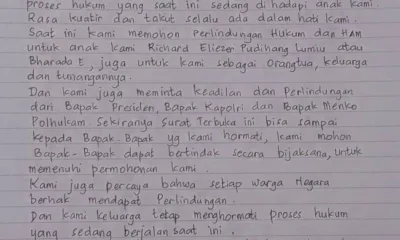 proses hukum yang saat ini sedang di hadapi anak kami.
Rasa kuatir dan takut selalu ada dalam hati kami.
Saat ini kami memohon Perlindungan Hukum dan HAM
untuk anak kami Richard Eliezer Pudihang Lumiu atau
Bharada E, juga untuk kami sebagai Orangtua, keluarga
dan tunangannya.
Dan kami juga meminta keadilan dan Perlindungan
dari Bapak Presiden, Bapak Kapolri dan Bapak Menko
Polhukam. Sekiranya Surat Terbuka ini bisa sampai
kepada Bapak-Bapak yg kami hormati, kami mohon
Bapak-Bapak dapat bertindak secara bijaksana, untuk
memenuhi permohonan kami.
Kami juga percaya bahwa setiap warga Negara
berhak mendapat Perlindungan.
Dan kami keluarga tetap menghormati proses hukum
yang sedang berjalan saat ini.